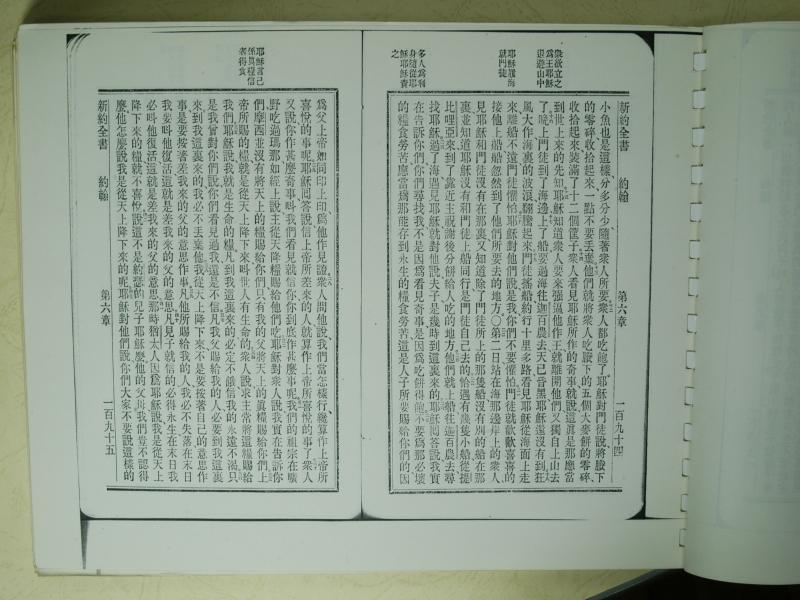 新約全書 約翰 第六章 一百九十四
衆欲立之
爲王耶穌
退避山中
耶穌履海
就門徒
多人爲利
身隨從耶
穌耶穌責
之
小魚也是這樣分多分少隨著衆人所要衆人都吃飽了耶穌對門徒說將賸下
的零碎收拾起來一點不要丟棄他們就將衆人吃賸下的五個大麥餅的零碎
收拾起來裝滿了十二個筐子衆人看見耶穌所作的奇事就說這眞是那應當
到世上來的先知耶穌知道衆人要來強逼他作王就離開他們又獨自上山去
了晚上門徒到了海邊上了船要過海往迦百農去天已昏黑耶穌還沒有到狂
風大作海裏的波浪翻騰起來門徒搖船約行十里多路看見耶穌從海面上走
來離船不遠門徒懼怕耶穌對他們說是我你們不要懼怕門徒就歡歡喜喜的
接他上船船忽然到了他們所要去的地方〇第二日站在海那邊岸上的衆人
見耶穌和門徒沒有在那裏又知道除了門徒所上的那隻船沒有別的船在那
裏並知道耶穌沒有和門徒上船同行是門徒自己去的恰遇有幾隻小船從提
比哩亞來到了靠近主祝謝後分餅給人吃的地方他們就上船往迦百農去尋
找耶穌過了海遇見耶穌就對他說夫子是幾時到這裏來的耶穌回答說我實
在告訴你們你們尋找我不是因爲看見奇事是因爲吃餅得飽不要爲那必壞
的糧食勞苦應當爲那能存到永生的糧食勞苦這是人子所要賜給你們的因
耶穌言己
係眞糧信
者得食
爲父上帝如同印上印爲他作見證衆人問他說我們當怎樣行纔算作上帝所
喜悅的事呢耶穌回答說信上帝所差來的人就算作上帝所喜悅的事了衆人
又說你作甚麼奇事叫我們看見就信你你到底作甚麼事呢我們的祖宗在曠
野吃過瑪那如經上說主從天降糧賜給他們吃耶穌對衆人說我實在告訴你
們摩西並沒有將天上的糧賜給你們只有我的父將天上的眞糧賜給你們上
帝所賜的糧就是從天上降下來叫世人有生命的衆人說求主常將這糧賜給
我們耶穌說我就是生命的糧凡到我這裏來的必定不餓信我的永遠不渴只
是我曾對你們說你們看見過我還是不信凡我父賜給我的人必要到我這裏
來到我這裏來的我必不丟棄他我從天上降下來不是要按著自己的意思作
事是要按著差我來的父的意思作事凡他所賜給我的人我必不失落在末日
我要叫他復活這就是差我來的父的意思凡見子就信的必得永生在末日我
必叫他復活這就是差我來的父的意思那時猶太人因爲耶穌說我是從天上
降下來的糧就不喜悅說這不是約瑟的兒子耶穌麼他的父母我們豈不認得
麼他怎麼說我是從天上降下來的呢耶穌對他們說你們大家不要說這樣的
新約全書 約翰 第六章 一百九十五